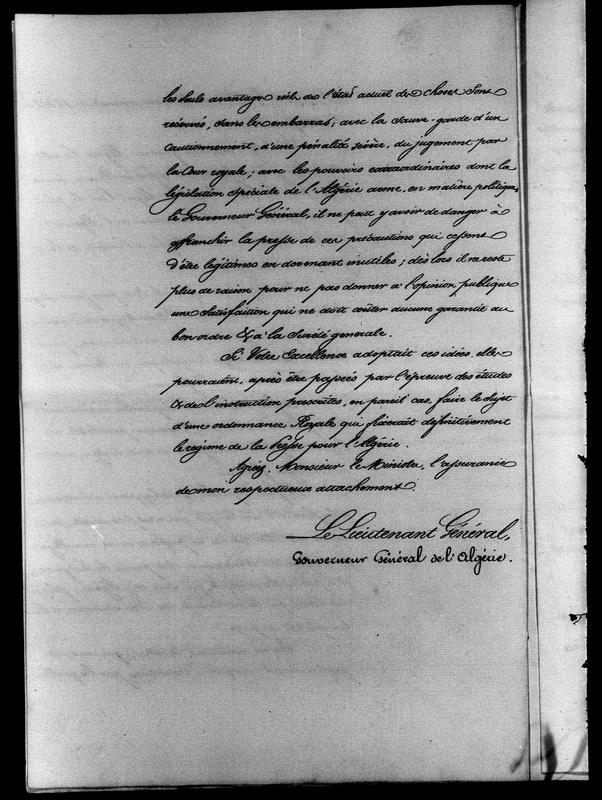 les seuls avantages réels de l'état actuel des choses sont
réservés, sans les embarras; avec la sauve-garde d'un
cautionnement, d'une pénalité sévère, du jugement par
la Cour royale; avec les pouvoirs extraordinaires dont la
législation spéciale de l'Algérie arme, en matière politique,
le Gouverneur Général, il ne peut y avoir de danger à
affranchir la presse de ces précautions qui cessent
d'être légitimes en devenant inutiles; dès lors il ne reste
plus de raison pour ne pas donner à l'opinion publique
une satisfaction qui ne doit coûter aucune garantie au
bon ordre & à la sûreté générale.
Si Votre Excellence adoptait ces idées, elles
pourraient, après être passées par l'épreuve des études
& de l'instruction prescrites, en pareil cas, faire le sujet
d'une ordonnance Royale qui fixerait définitivement
le régime de la Presse pour l'Algérie.
Agréez, Monsieur le Ministre, l'assurance
de mon respectueux attachement.
Le Lieutenant Général,
Gouverneur Général de l'Algérie.